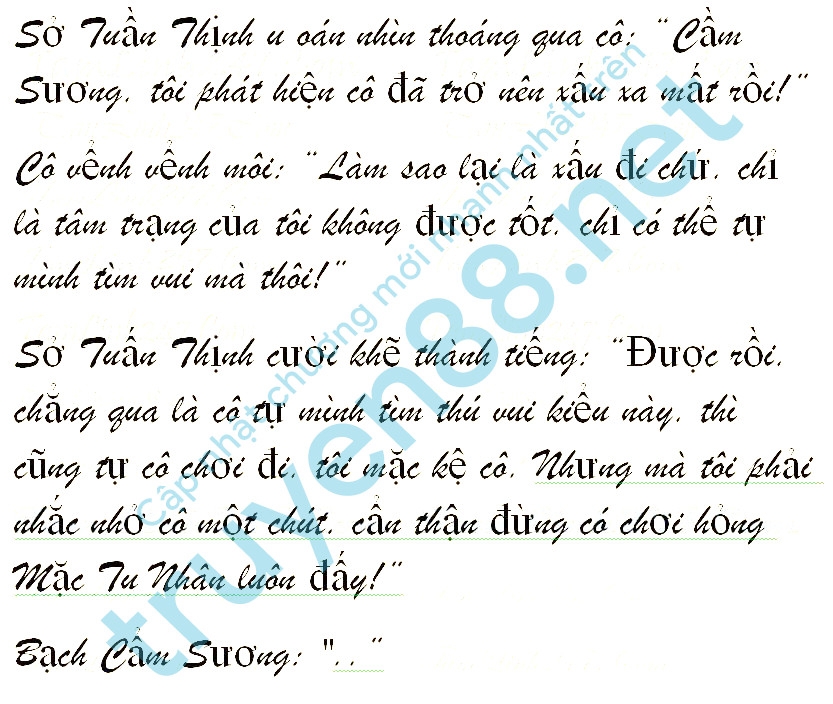 Sở Tuần Thịnh u oán nhìn thoáng qua cô: "Cầm
Sương, tôi phát hiện cô đã trở nên xấu xa mất rồi!"
Cô vểnh vểnh môi: "Làm sao lại là xấu đi chứ, chỉ
là tâm trạng của tôi không được tốt, chỉ có thể tự
mình tìm vui mà thôi!"
Sở Tuấn Thịnh cười khẽ thành tiếng: "Được rồi,
chẳng qua là cô tự mình tìm thú vui kiểu này, thì
cũng tự cô chơi đi, tôi mặc kệ cô. Nhưng mà tôi phải
nhắc nhở cô một chút, cẩn thận đừng có chơi hỏng
Mặc Tu Nhân luôn đấy!"
Bạch Cẩm Sương: ".."
Cập nhật chương mới nhanh nhất trên
truyen88.net